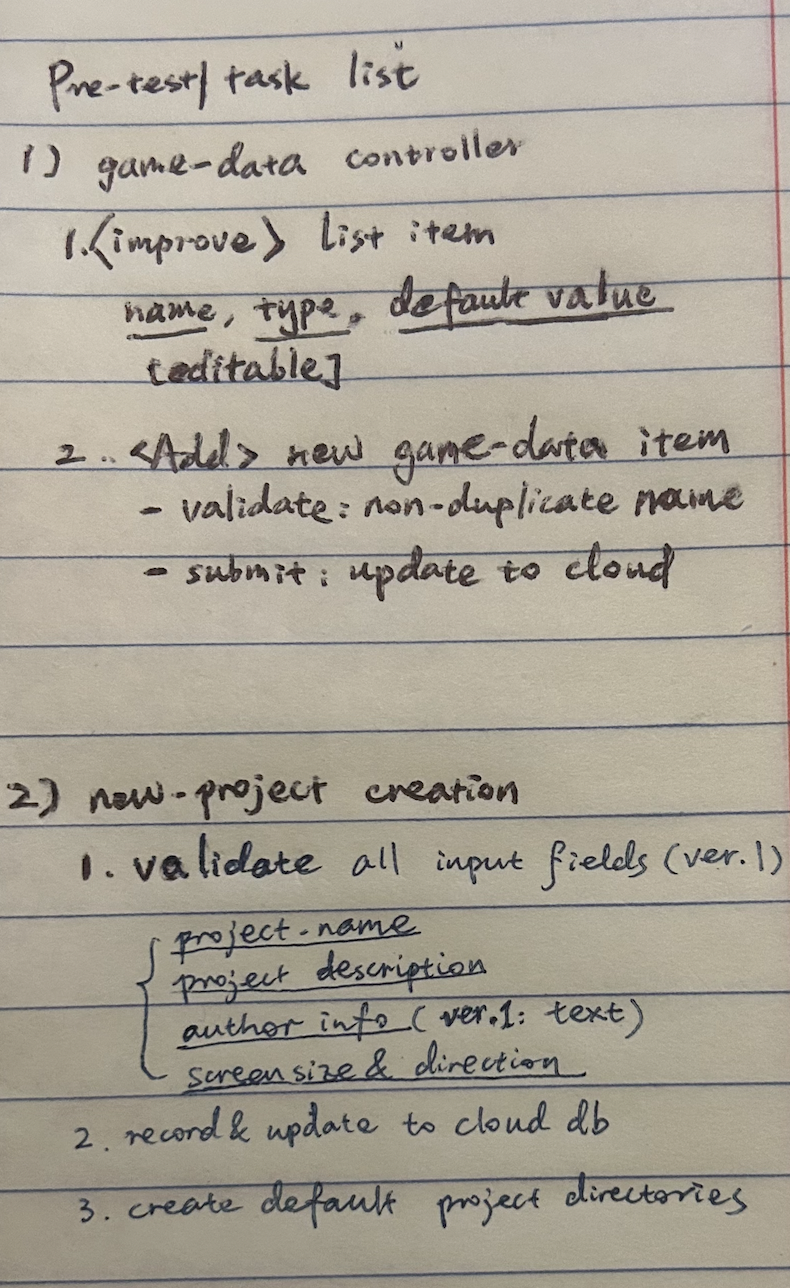 Pre-test/ task list
1) game-data controller
1.<improve> list item
name, type, default value
[editable]
2. <Add> new game-data item
- validate: non-duplicate name
- submit: update to cloud
2) new-project creation
1. validate all input fields (ver.1)
project-name
project description
author info (ver.1: text)
screen size & direction
2. record & update to cloud db
3. create default project directories